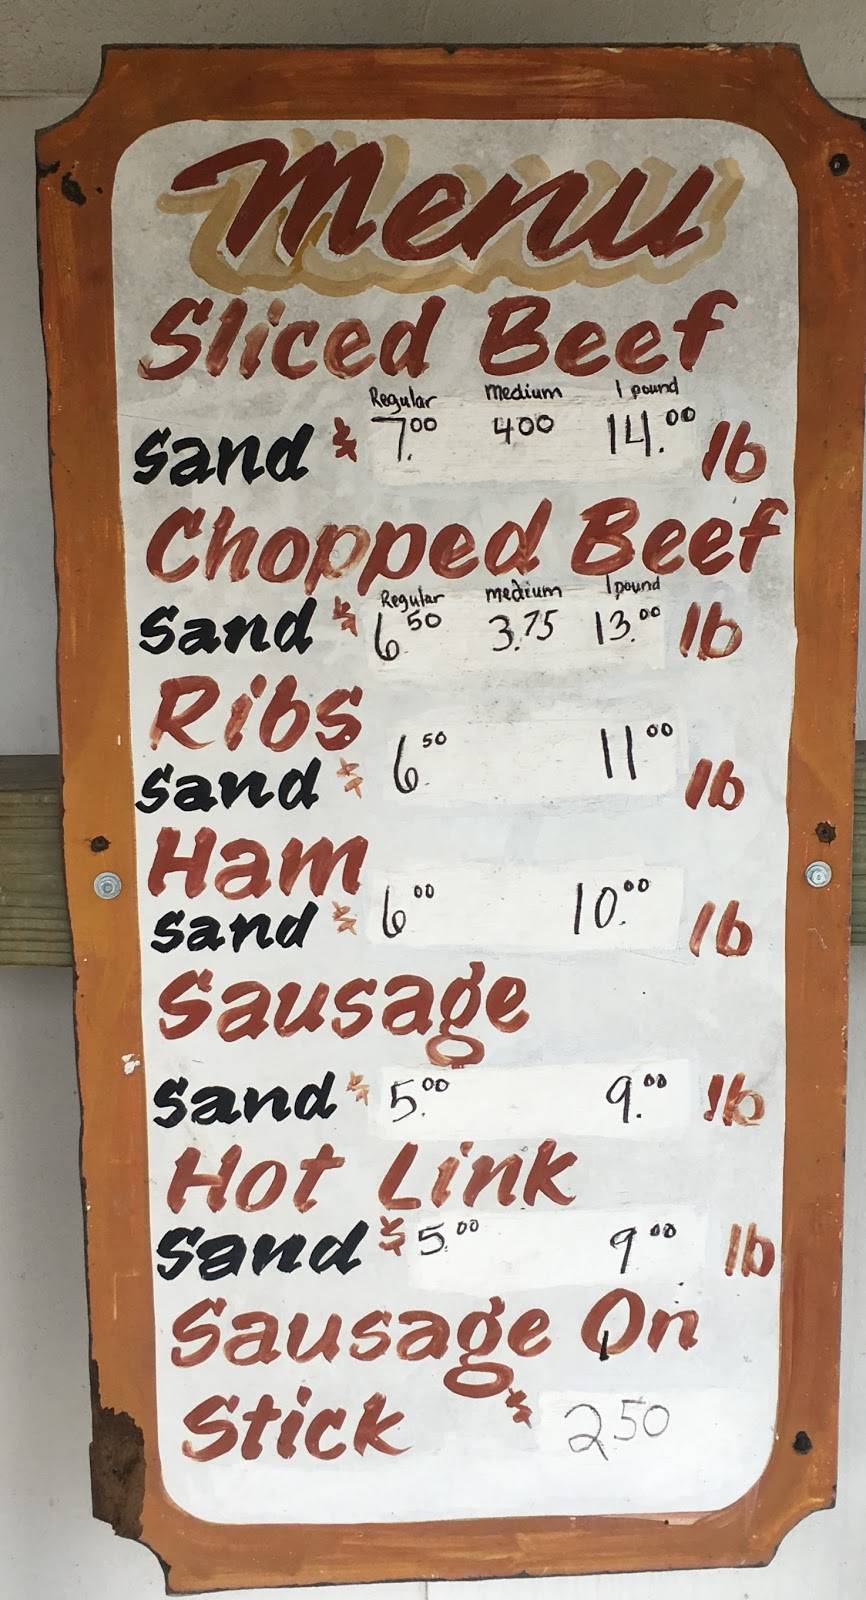 Menu
Sliced Beef
Regular medium 1 pound
Sand $ 7.00 400 14.00 lb
Chopped Beef
Regular medium 1 pound
Sand $ 6 50 3.75 13.00 lb
Ribs
Sand $ 6.50 11 00 lb
Ham
Sand $ 6 00 10.00 lb
Sausage
Sand $ 5.00 9.00 lb
Hot Link
Sand $ 5.00 9 00 lb
Sausage On
Stick $ 2.50